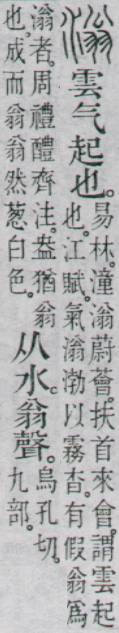 滃雲气起也。易林。潼滃蔚薈。扶首來會。謂雲起也。江賦。氣滃渤以霧杳。有假翁爲
滃者。周禮醴齊注。盎猶翁也。成而翁翁然葱白色。从水。翁聲。烏孔切。九部。